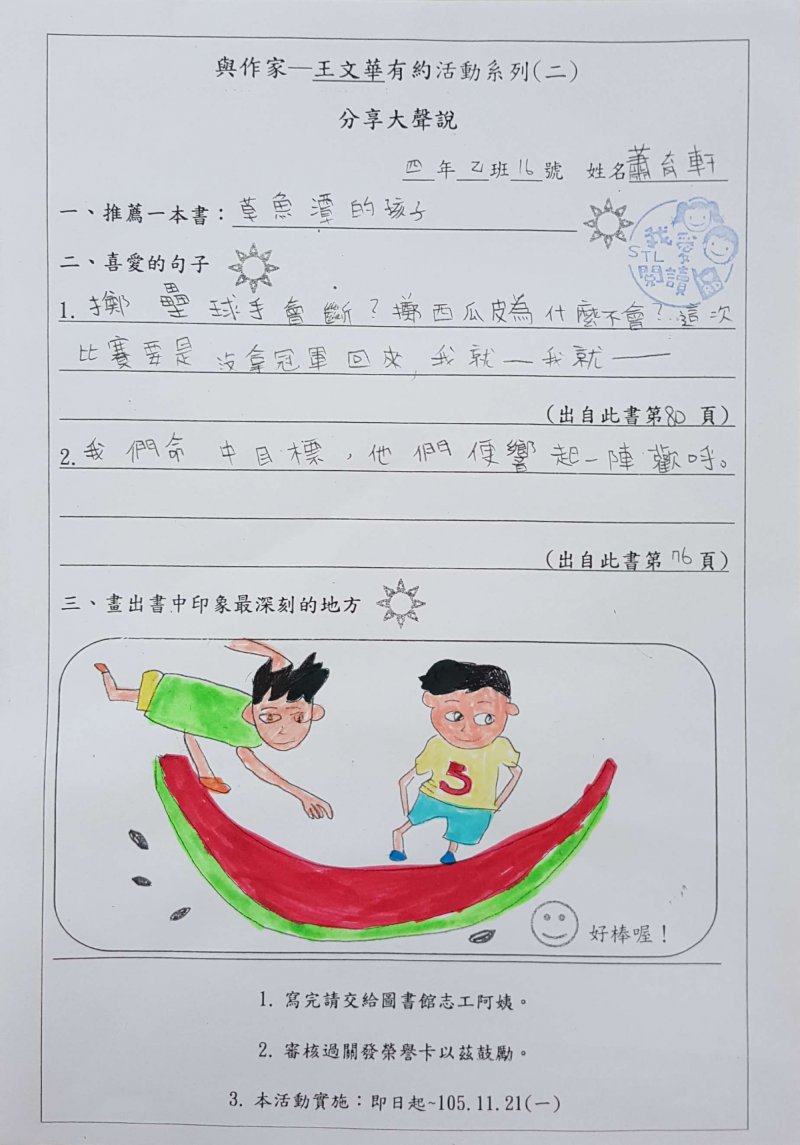 與作家—王文華有約活動系列(二)
分享大聲說
四年乙班16號 姓名蕭育軒
一、推薦一本書：草魚潭的孩子
我愛
STL
閱讀
二、喜愛的句子
1.擲壘球手會斷？擲西瓜皮為什麼不會？這次
比賽要是沒拿冠軍回來，我就—我就——
(出自此書第80頁)
2.我們命中目標，他們便響起一陣歡呼。
(出自此書第76頁)
三、畫出書中印象最深刻的地方
5
好棒喔！
1. 寫完請交給圖書館志工阿姨。
2. 審核過關發榮譽卡以茲鼓勵。
3. 本活動實施：即日起~105.11.21(一)